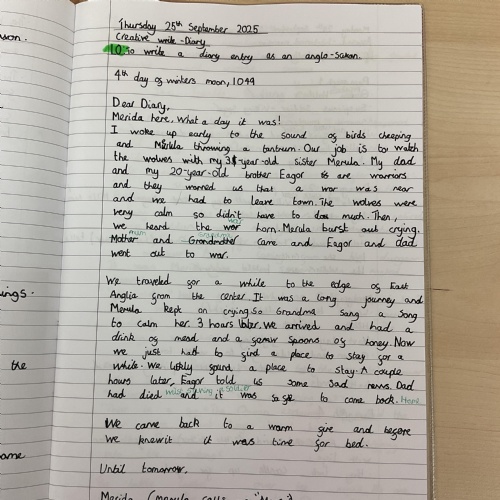 son.
Thursday 25th September 2025
Creative write - Diary
LO: to write a diary entry as an anglo-saxon.
4th day of winters moon, 1099
Dear Diary,
Merida here, what a day it was!
I woke up early to the sound of birds cheeping
and Merula throwing a tantrum. Our job is to watch
the wolves with my 3-year-old sister Merula. My dad
and my 20-year-old brother Eagor are warriors
and they warned us that a war was near
and we had to leave town. The wolves were
very calm so didn't have to do much. Then,
we heard the war horn. Merula burst out crying.
mum grandma
Mother and Grandmother came and Eagor and dad
went out to war.
We traveled for a while to the edge of East
Anglia from the center. It was a long journey and
Merula kept on crying. So Grandma sang a song
to calm her. 3 hours later, we arrived and had a
drink of mead and a few spoons of honey. Now
we just had to find a place to stay for a
while. We luckly found a place to stay. A couple
hours later, Eagor told us some sad news. Dad
had died whilst slaving a soldier and it was safe to come back. Home
We came back to a warm fire and before
we knew it it was time for bed.
Until tomorrow,
Merida (Merula calls
ings.
the
ame